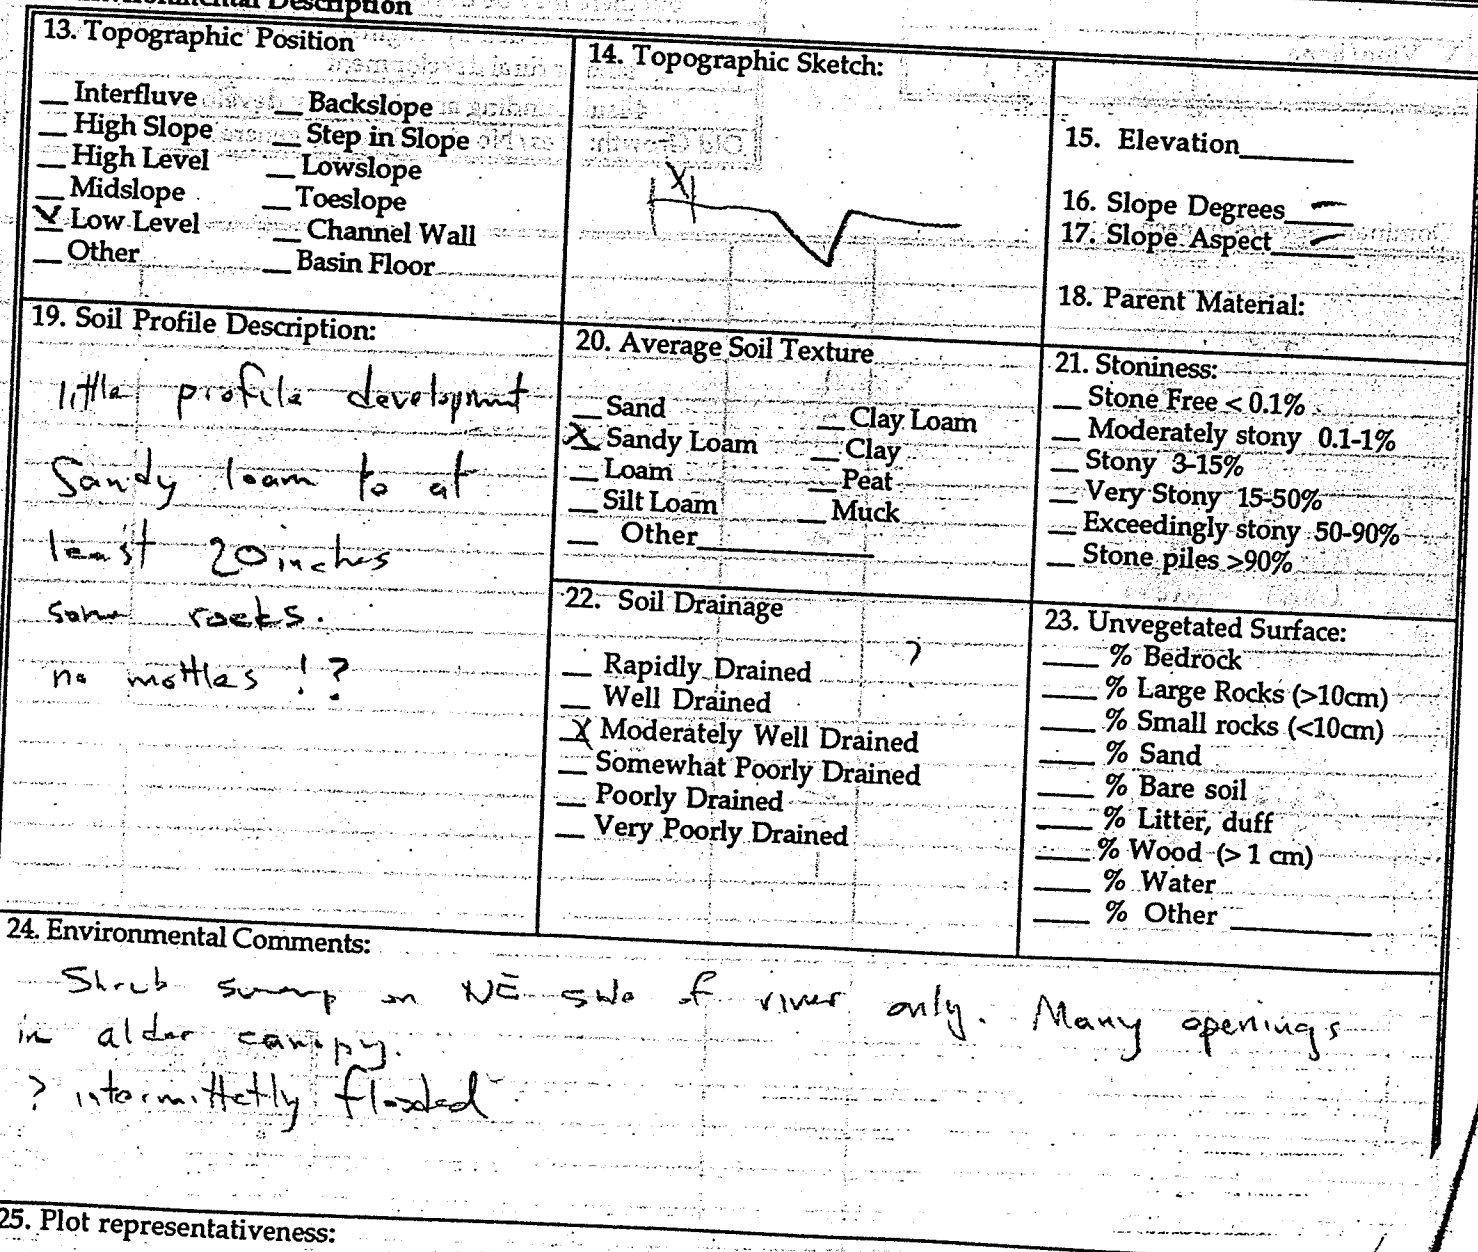 Environmental Description
13. Topographic Position
__ Interfluve __ Backslope
__ High Slope __ Step in Slope
__ High Level __ Lowslope
__ Midslope __ Toeslope
X Low Level __ Channel Wall
__ Other __ Basin Floor
14. Topographic Sketch:
X
15. Elevation________
16. Slope Degrees __—__
17. Slope Aspect __—__
18. Parent Material:
19. Soil Profile Description:
little profile development
Sandy loam to at
least 20 inches
some rocks.
no mottles !?
20. Average Soil Texture
__ Sand __ Clay Loam
X Sandy Loam __ Clay
__ Loam __ Peat
__ Silt Loam __ Muck
__ Other____________
21. Stoniness:
__ Stone Free < 0.1%
__ Moderately stony 0.1-1%
__ Stony 3-15%
__ Very Stony 15-50%
__ Exceedingly stony 50-90%
__ Stone piles >90%
22. Soil Drainage
?
__ Rapidly Drained
__ Well Drained
X Moderately Well Drained
__ Somewhat Poorly Drained
__ Poorly Drained
__ Very Poorly Drained
23. Unvegetated Surface:
____ % Bedrock
____ % Large Rocks (>10cm)
____ % Small rocks (<10cm)
____ % Sand
____ % Bare soil
____ % Litter, duff
____ % Wood (> 1 cm)
____ % Water
____ % Other __________
24. Environmental Comments:
Shrub swamp on NE side of river only. Many openings
in alder canopy.
? intermittetly flooded
25. Plot representativeness: